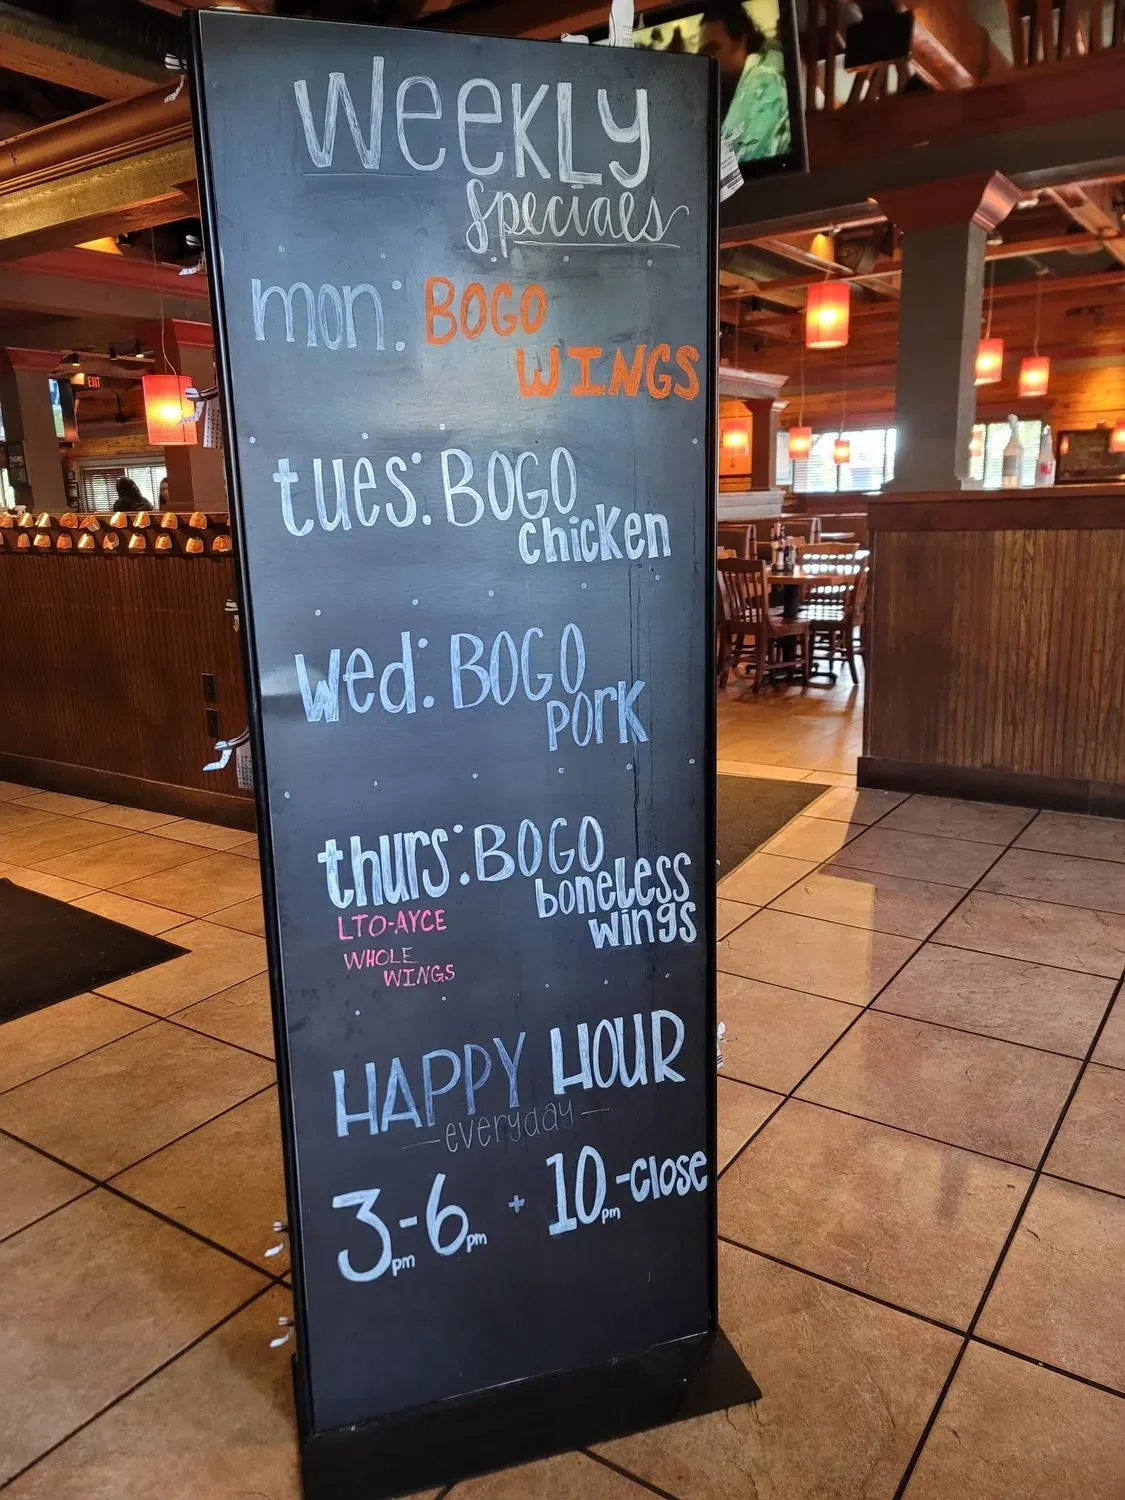 Weekly
Specials
mon: BOGO
WINGS
tues: BOGO
chicken
wed: BOGO
pork
thurs: BOGO
boneless
wings
LTO-AYCE
WHOLE
WINGS
HAPPY HOUR
-everyday-
3pm-6pm + 10pm-close
EXIT